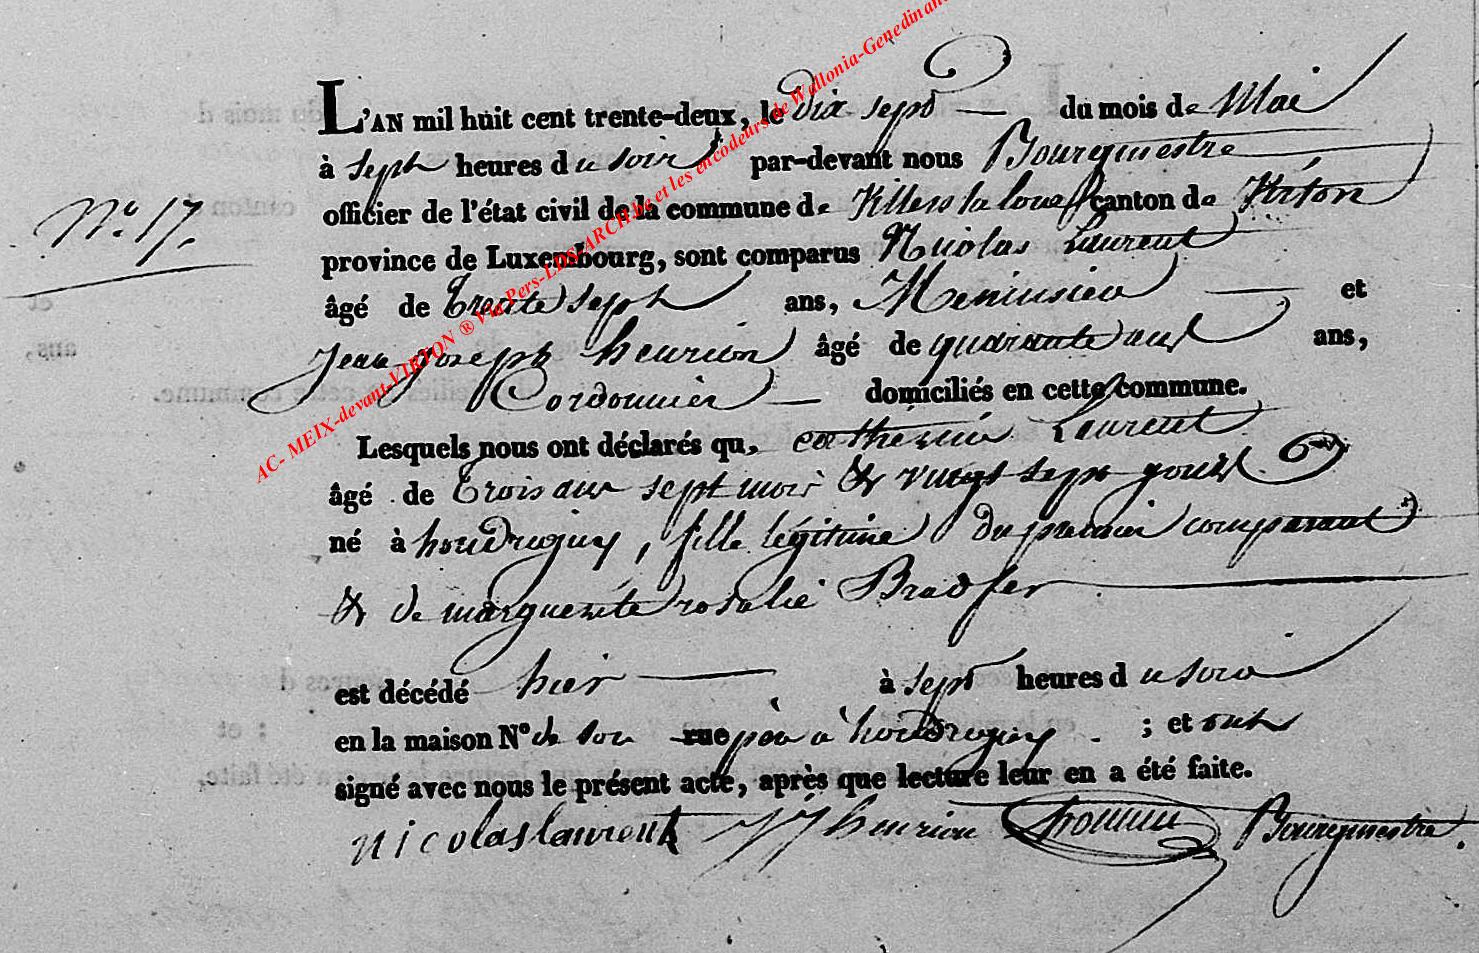 L'AN mil huit cent trente-deux, le dix sept du mois de Mai
à sept heures du soir par-devant nous Bourgmestre
N° 17. officier de l'état civil de la commune de Villers la loue canton de Virton
province de Luxembourg, sont comparus Nicolas Laurent
âgé de trente sept ans, Menuisier et
Jean Joseph henrion âgé de quarante ans ans,
Cordonnier domiciliés en cette commune.
Lesquels nous ont déclarés qu, catherine Laurent
âgé de trois ans sept mois & vingt sept jours
né à houdrigny, fille légitime du premier comparant
& de marguerite rosalie Bradfer
est décédé hier à sept heures du soir
en la maison N° de son rue père à houdrigny ; et ont
signé avec nous le présent acte, après que lecture leur en a été faite.
nicolas laurent J J henrion Bourgmestre.
AC- MEIX-devant-VIRTON ® Via Pers-LDS ARCH.be et les encodeurs de Wallonia-Genedinant